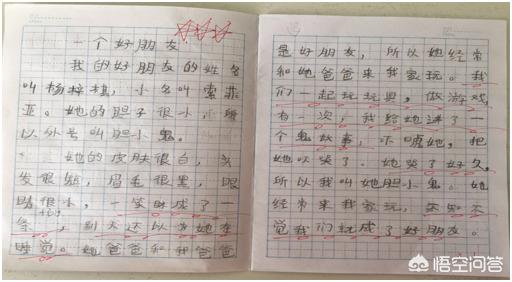 一个好朋友
我的好朋友的姓名
叫杨梓棋，小名叫索菲
亚。她的胆子很小，
以外号叫胆小鬼。
她的皮肤很白，头
发很短，眉毛很黑，眼
睛很小，一笑就成了一
条，别人还以为她在
睡觉。她爸爸和我爸爸
是好朋友，所以她经常
和她爸爸来我家玩。我
们一起玩玩具，做游戏
有一次，我给她讲了一
个鬼故事，唬她，把
她吓哭了。她哭了好久，
所以我叫她胆小鬼。她
经常来我家玩，不知不
觉我们就成了好朋友。
悟空问答